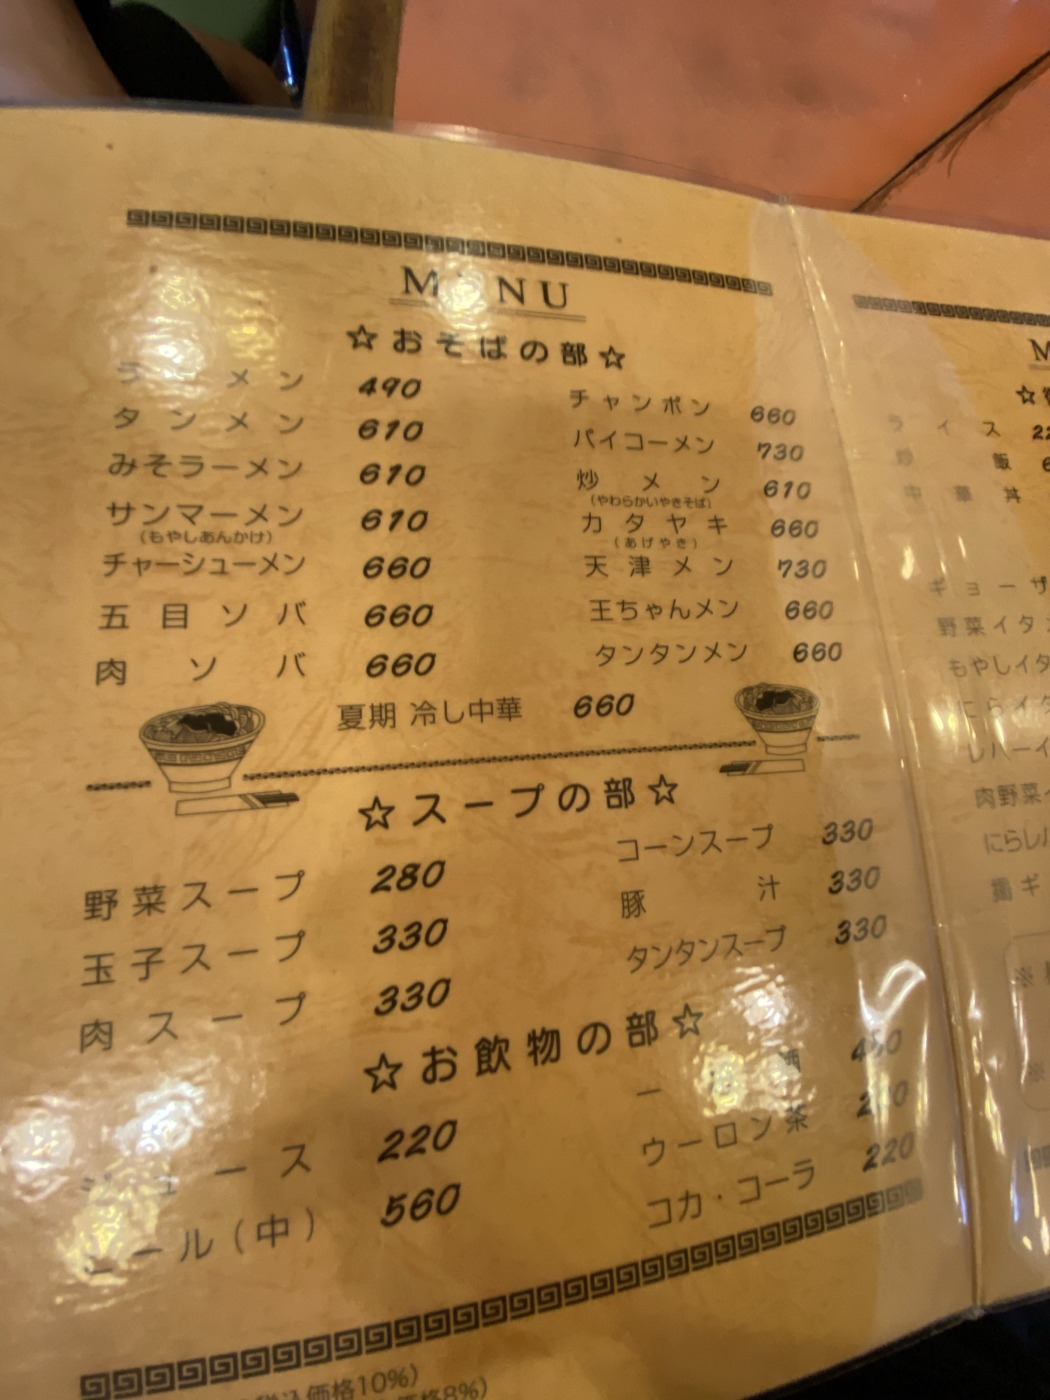 MENU
☆おそばの部☆
ラーメン 490
タンメン 610
みそラーメン 610
サンマーメン 610
(もやしあんかけ)
チャーシューメン 660
五目ソバ 660
肉ソバ 660
チャンポン 660
パイコーメン 730
炒メン 610
(やわらかいやきそば)
カタヤキ 660
(あげやき)
天津メン 730
王ちゃんメン 660
タンタンメン 660
夏期 冷し中華 660
☆スープの部☆
野菜スープ 280
玉子スープ 330
肉スープ 330
コーンスープ 330
豚汁 330
タンタンスープ 330
☆お飲物の部☆
ジュース 220
ビール(中) 560
酒
ウーロン茶
コカ・コーラ 220
税込価格10%)
価格8%)
M
☆
ライス 22
炒飯 6
中華丼
ギョーザ
野菜イタ
もやしイタ
にらイタ
レバーイ
肉野菜
にらレバ
ギ
※
※